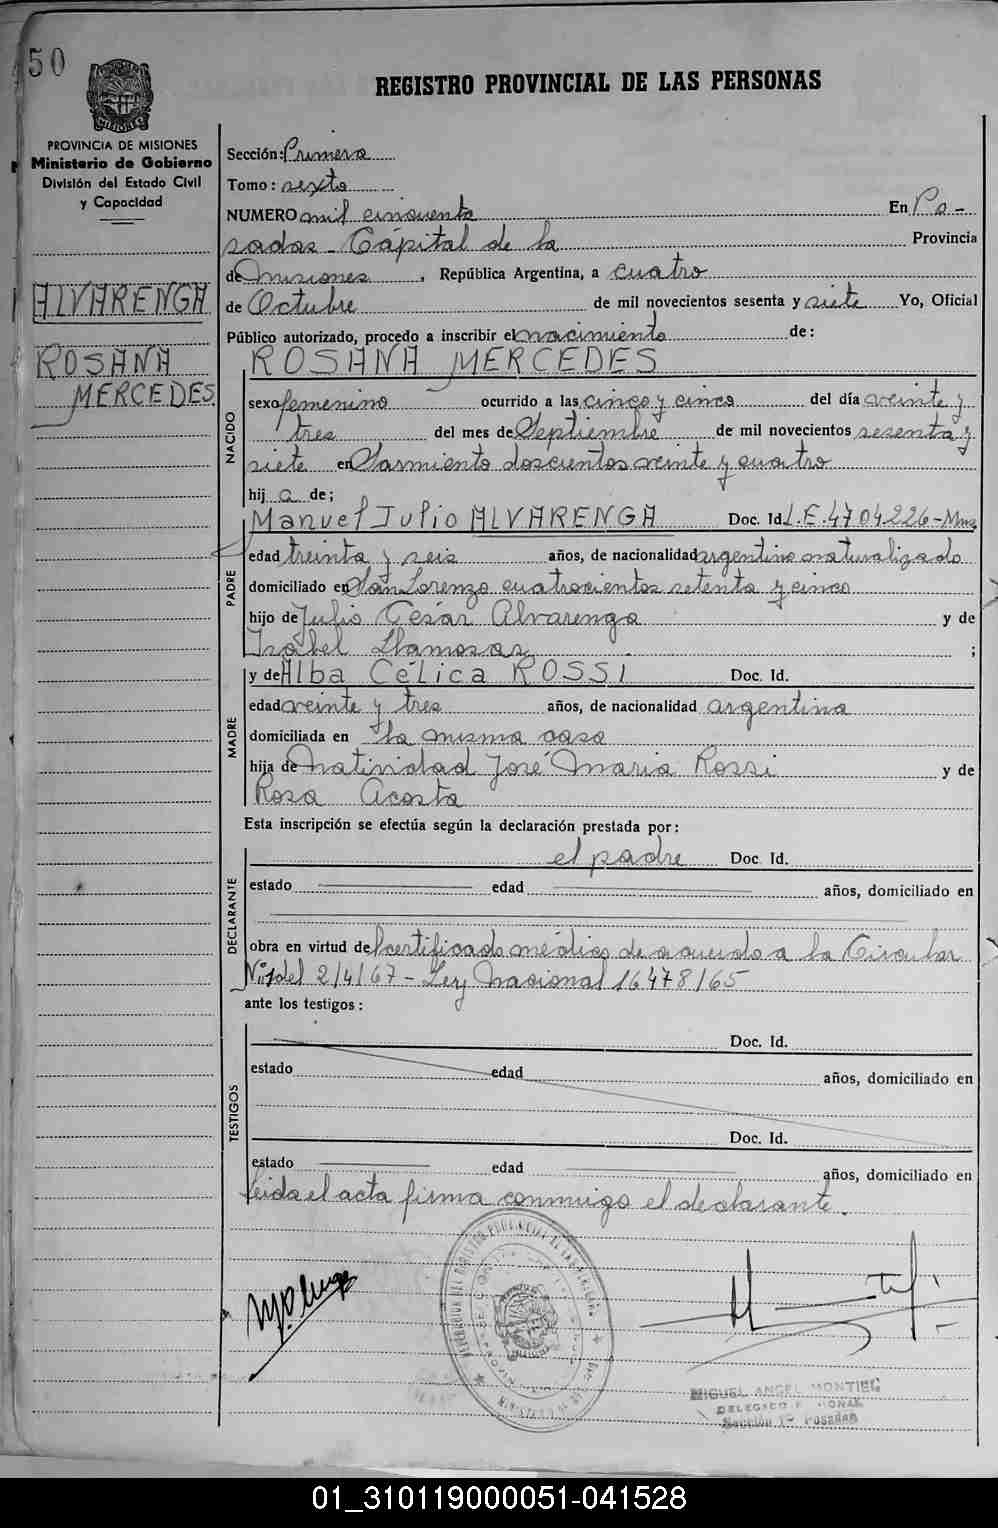 50
MISIONES
PROVINCIA DE MISIONES
Ministerio de Gobierno
División del Estado Civil
y Capacidad
ALVARENGA
ROSANA
MERCEDES
REGISTRO PROVINCIAL DE LAS PERSONAS
Sección: Primera
Tomo: sexto
NUMERO mil cincuenta En Po-
sadas - Cápital de la Provincia
de Misiones, República Argentina, a cuatro
de Octubre de mil novecientos sesenta y siete Yo, Oficial
Público autorizado, procedo a inscribir el nacimiento de:
ROSANA MERCEDES
NACIDO
sexo femenino ocurrido a las cinco y cinco del día veinte y
tres del mes de Septiembre de mil novecientos sesenta y
siete en Sarmiento doscientos veinte y cuatro
hij a de;
Manuel Julio ALVARENGA Doc. Id. L.E. 4704226-Mnes
PADRE
edad treinta y seis años, de nacionalidad argentino naturalizado
domiciliado en San Lorenzo cuatrocientos setenta y cinco
hijo de Julio César Alvarenga y de
Isabel Llamosas ;
y de Alba Célica ROSSI Doc. Id.
MADRE
edad veinte y tres años, de nacionalidad argentina
domiciliada en la misma casa
hija de Natividad José María Rossi y de
Rosa Acosta
Esta inscripción se efectúa según la declaración prestada por:
el padre Doc. Id.
DECLARANTE
estado edad años, domiciliado en
obra en virtud del certificado médico de acuerdo a la Circular
Nº 1 del 2/4/67 - Ley Nacional 16478/65
ante los testigos:
Doc. Id.
TESTIGOS
estado edad años, domiciliado en
Doc. Id.
estado edad años, domiciliado en
Leida el acta firma conmigo el declarante.
MIGUEL ANGEL MONTIEL
DELEGADO
Sección 1º Posadas
01_310119000051-041528